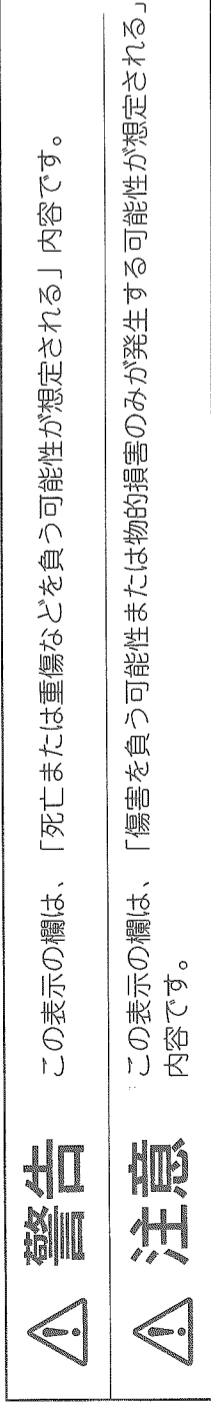 ⚠ 警告 この表示の欄は、「死亡または重傷などを負う可能性が想定される」内容です。
⚠ 注意 この表示の欄は、「傷害を負う可能性または物的損害のみが発生する可能性が想定される」
内容です。